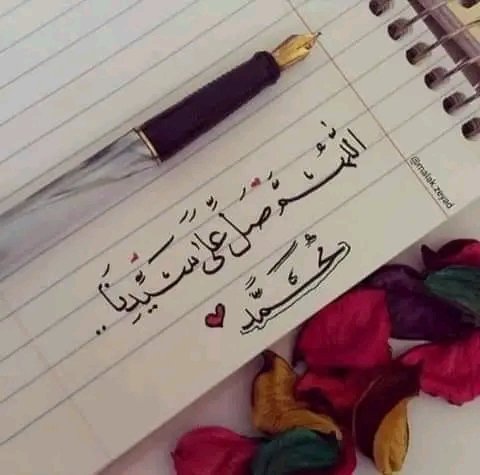 اللهُمَّ صَلِّ عَلَىٰ سَيِّدِنَا..
مُحَمَّد
@malak.zeyad